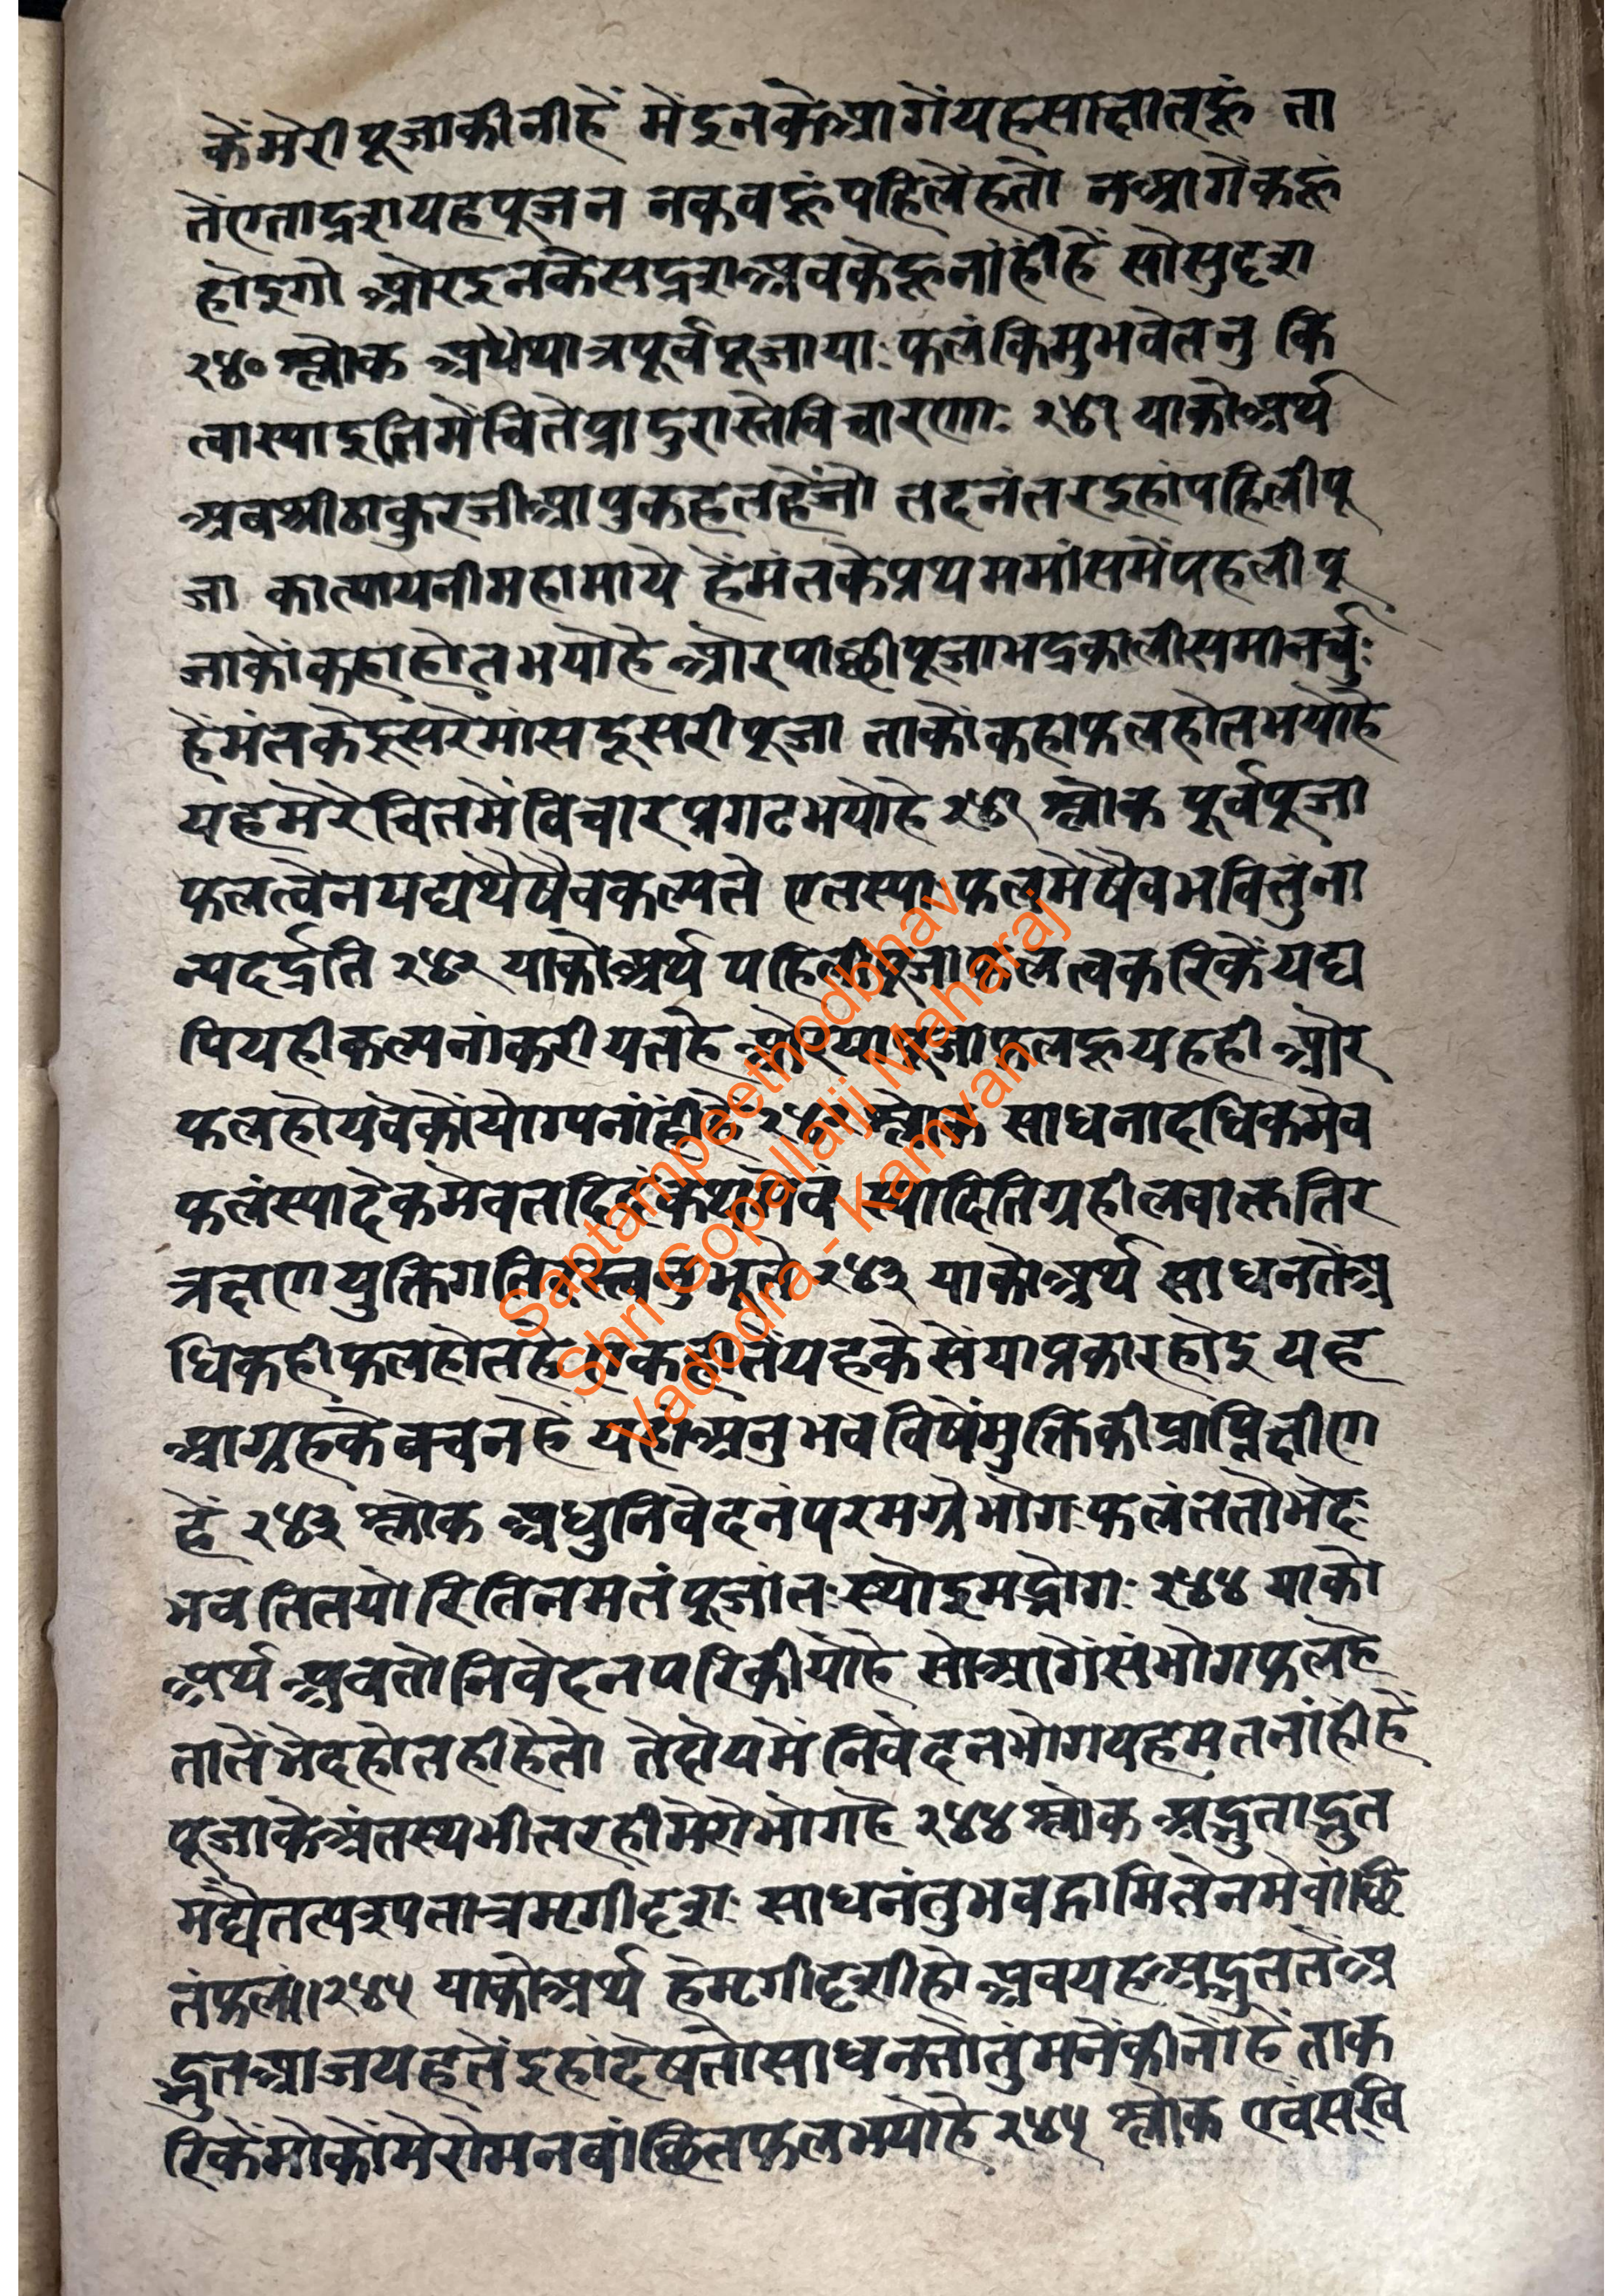 कें मेरी पूजा कीनी हें में इनके आगें यह साक्षात् हूं ता
तें एतादृश यह पूजन न कब हूं पहिलें हतो न आगें कहूं
होइगो ओर इनके सदृश अब के हू नांही हें सो सुदृश
२४० श्लोक अथैयात्र पूर्व पूजायाः फलं किमु भवेतनु किं
त्वास्यादिति में चिते प्रादुरास्ते विचारणाः २४१ याको अर्थ
अब श्रीठाकुरजी आपु कहत हैं जो तदनंतर इहां पहिली पू
जा कात्यायनी महामाये हेंमंत के प्रथम मांस में पहली पू
जा कों कहा होत भयो हे ओर पाछी पूजा भद्रकाली समानर्चुः
हेंमंत के दूसरे मांस दूसरी पूजा ताकों कहा फल होत भयो हे
यह मेरे चित में विचार प्रगट भयो हे २४१ श्लोक पूर्व पूजा
फलत्वेन यद्यथैषैव कल्पते एतस्याः फलमेषैव भवितुं ना
न्यदर्हति २४२ याको अर्थ पहिली पूजा फलत्व करिकें यद्य
पि यही कल्पनां करीयत हे ओर या पूजा फल हू यह ही ओर
फल होयवे कों योग्य नांही हे २४२ श्लोक साधनादधिकमेव
फलं स्यादेकमेव तदिदं कथमेवं स्यादिति ग्रहीलवाक्ततिर
त्रक्षण युक्तिगतिरस्त्वनुभूते २४३ याको अर्थ साधन तें अ
धिक ही फल होत हे एक ही तें यह केसें या प्रकार होइ यह
आग्रह के वचन हें यहां अनुभव विषें मुक्ति की प्राप्ति क्षीण
हें २४३ श्लोक अधुनिवेदनं परमग्रे भोगः फलं ततो भेदः
भवति तयोरिति नमतं पूजांतः स्थोइमद्भोगः २४४ याको
अर्थ अब तो निवेदन परि कीयो हे सो आगें संभोग फल हे
तातें भेद होत ही हे तो तेहोय में निवेदन भोग यह मत नांहीं हें
पूजा के अंतस्थ भीतर ही मेरो भोग हे २४४ श्लोक अद्भुताद्भुत
मद्यैतत्पश्यतात्र मगीदृशः साधनं तु भवद्गामि तेन मे वांछि
तं फलं॥२४५ याको अर्थ हे मगीदृशी हो अब यह अद्भुत तें अ
द्भुत आज यह तें इहां देषतो साधन तो तुंमनें कीनो हे ताक
रिकें मोकों मेरो मनवांछित फल भयो हे २४५ श्लोक एवं सखि
Saptampeethodbhav
Shri Gopallalji Maharaj
Vadodra - Kamvan